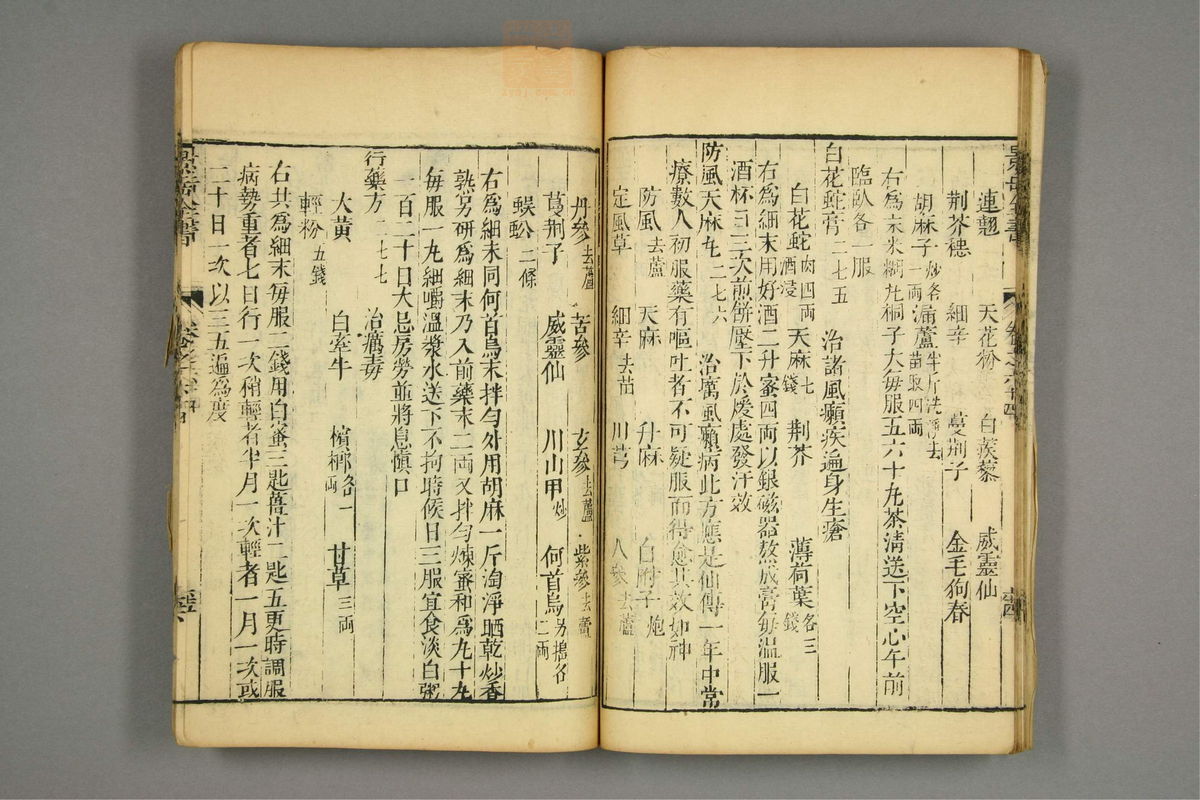 連翹 天花粉 白蒺藜 威靈仙
荆芥穗 細辛 蔓荆子 金毛狗脊
胡麻子炒各一兩 漏蘆半斤洗淨去苗取四両
右為末米糊丸桐子大每服五六十丸茶清送下空心午前
臨臥各一服
白花蛇膏二七五 治諸風癩疾遍身生瘡
白花蛇肉四両酒浸 天麻七錢 荆芥 薄荷葉各三錢
右為細末用好酒二升蜜四両以銀磁器熬成膏每温服一
酒杯日三次煎餅壓下於煖處發汗效
防風天麻丸二七六 治厲風癩病此方應是仙傳一年中常
療數人初服藥有嘔吐者不可疑服而得愈其效如神
防風去蘆 天麻 升麻 白附子炮
定風草 細辛去苗 川芎 人參去蘆
丹參去蘆 苦參 玄參去蘆 紫參去蘆
蔓荆子 威靈仙 川山甲炒 何首烏另搗各二両
蜈蚣二條
右為細末同何首烏末拌勻外用胡麻一斤淘淨晒乾炒香
熟另研為細末乃入前藥末二両又拌勻煉蜜和為九十丸
每服一丸細嚼溫漿水送下不拘時候日三服宜食淡白粥
一百二十日大忌房勞並將息慎口
行藥方二七七 治癘毒
大黄 白牽牛 檳榔各一両 甘草三両
輕粉五錢
右共為細末每服二錢用白蜜三匙薑汁二匙五更時調服
病勢重者七日行一次稍輕者半月一次輕者一月一次或
二十日一次以三五遍為度
景岳全書